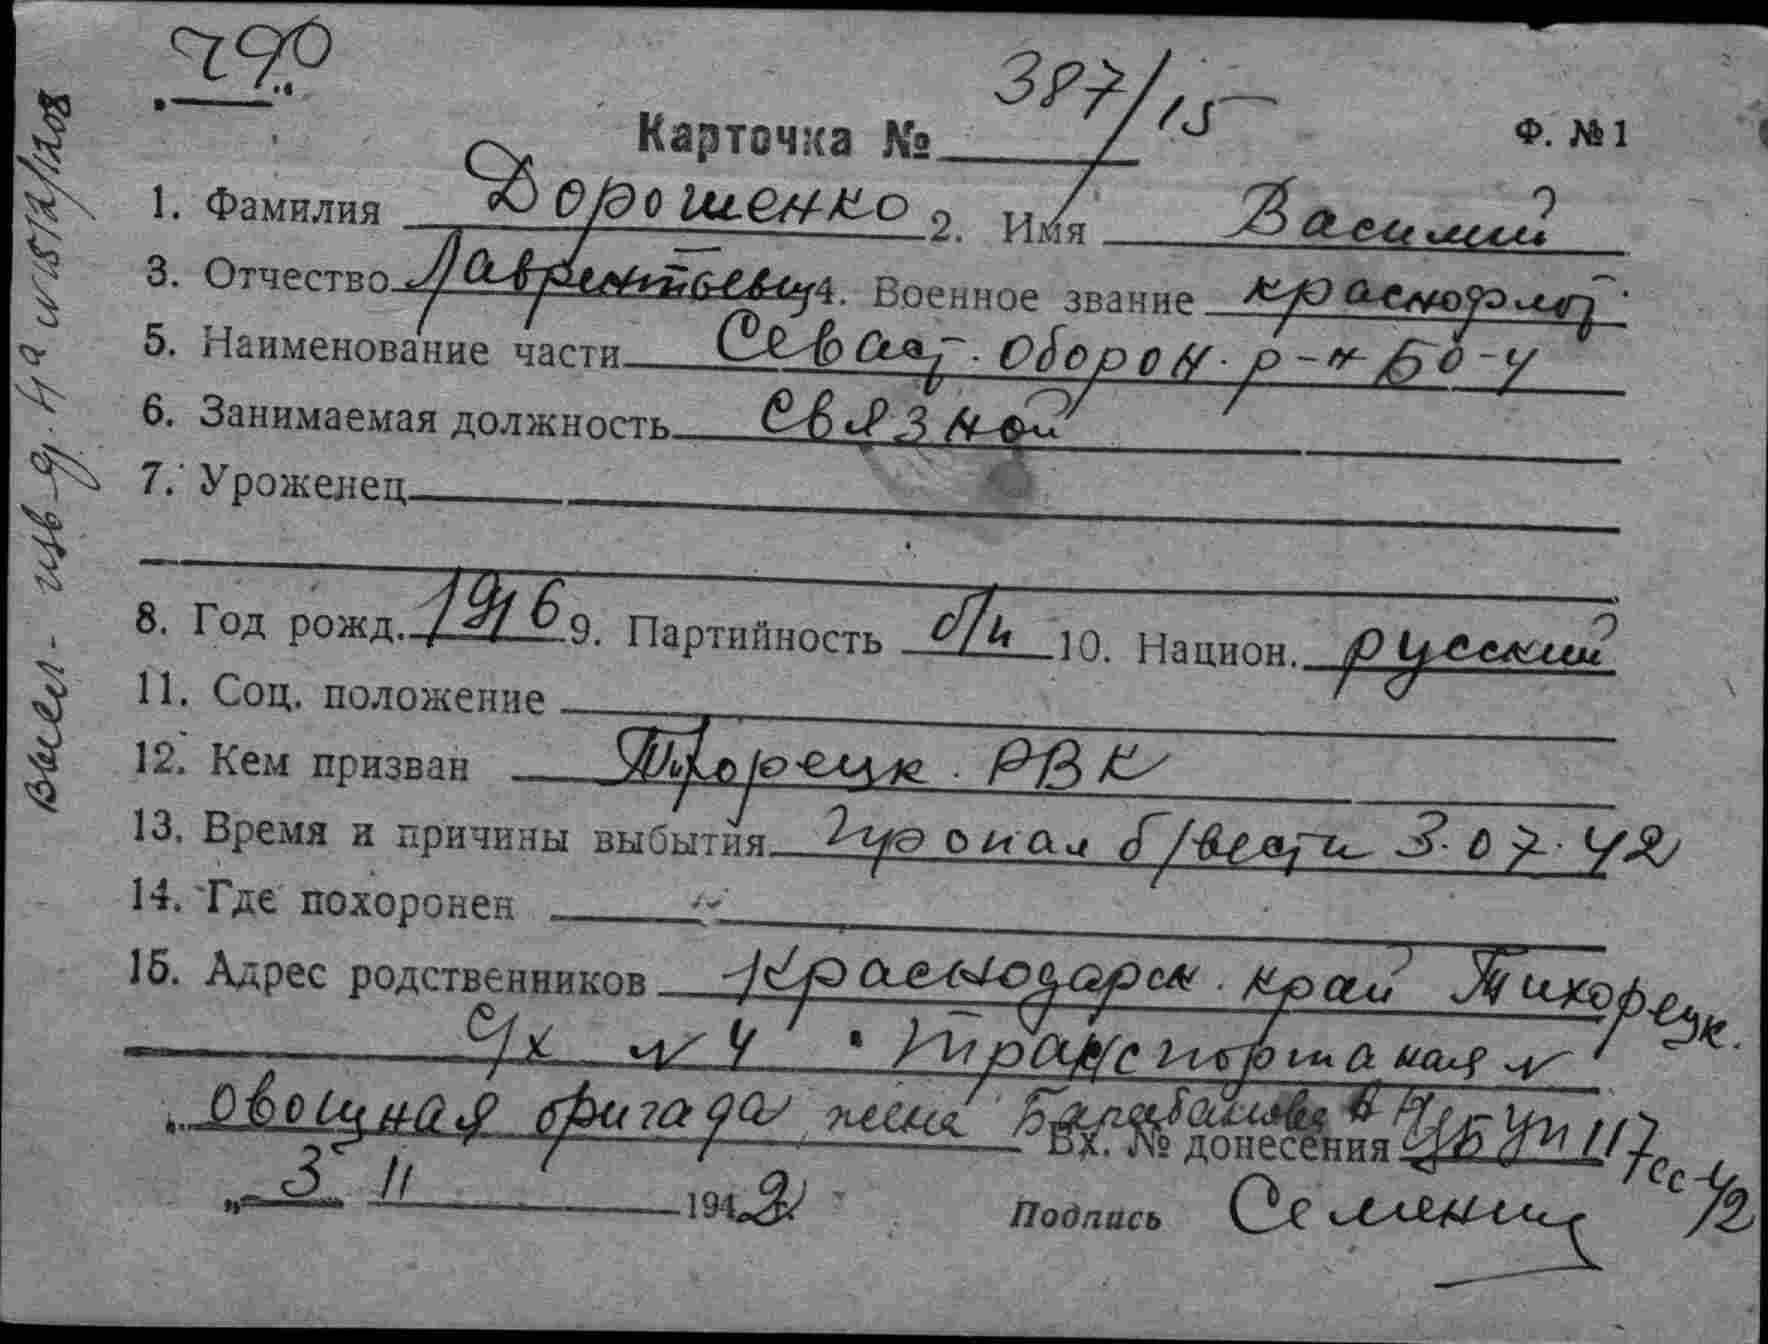 790
Карточка № 387/15
Ф. № 1
1. Фамилия Дорошенко 2. Имя Василий
3. Отчество Лаврентьевич 4. Военное звание краснофлот.
5. Наименование части Севаст. оборон. р-н БО-ч
6. Занимаемая должность связной
7. Уроженец
8. Год рожд. 1916 9. Партийность б/п 10. Национ. русский
11. Соц. положение
12. Кем призван Тихорецк. РВК
13. Время и причины выбытия Пропал б/вести 3.07.42
14. Где похоронен
15. Адрес родственников Краснодарск. край Тихорецк.
с/х N 4 Транспортная
овощная бригада, жена
Вх. № донесения ЦБУп 117сс 42
„3" 11 1942
Подпись
Высл- изв